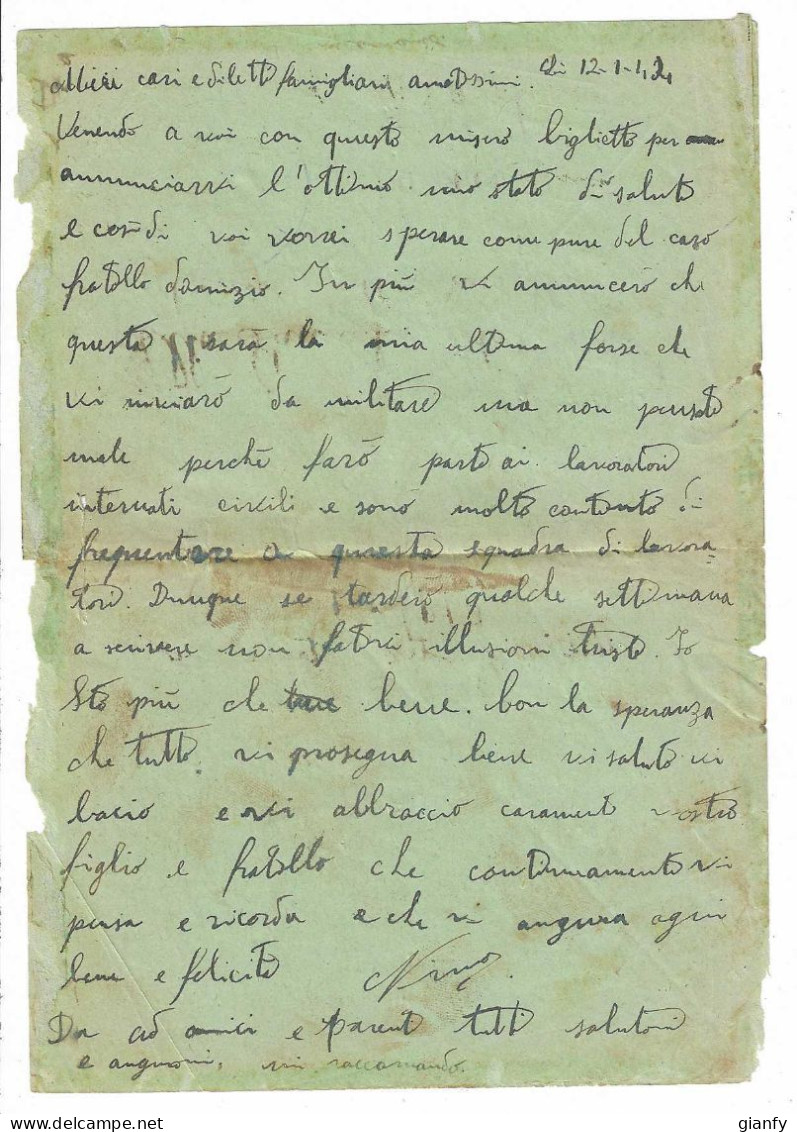 Miei cari e diletti famigliari amatissimi. Li 12-1-
Venendo a voi con questo misero biglietto per
annunciarvi l'ottimo mio stato di salute
e così di voi vorrei sperare come pure del caro
fratello damizio. In più vi annuncerò che
questa sarà la mia ultima forse che
vi invierò da militare ma non pensate
male perchè farò parte ai lavoratori
internati civili e sono molto contento di
frequentare a questa squadra di lavora=
tori. Dunque se tarderò qualche settimana
a scrivere non fatevi illusioni triste. Io
Sto più che bene. Con la speranza
che tutto vi prosegua bene vi saluto vi
bacio e vi abbraccio caramente vostro
figlio e fratello che continuamente vi
pensa e ricorda e che vi augura ogni
bene e felicità Nino
Da ad amici e parenti tutti salutoni
e auguroni, mi raccomando.
gianfy